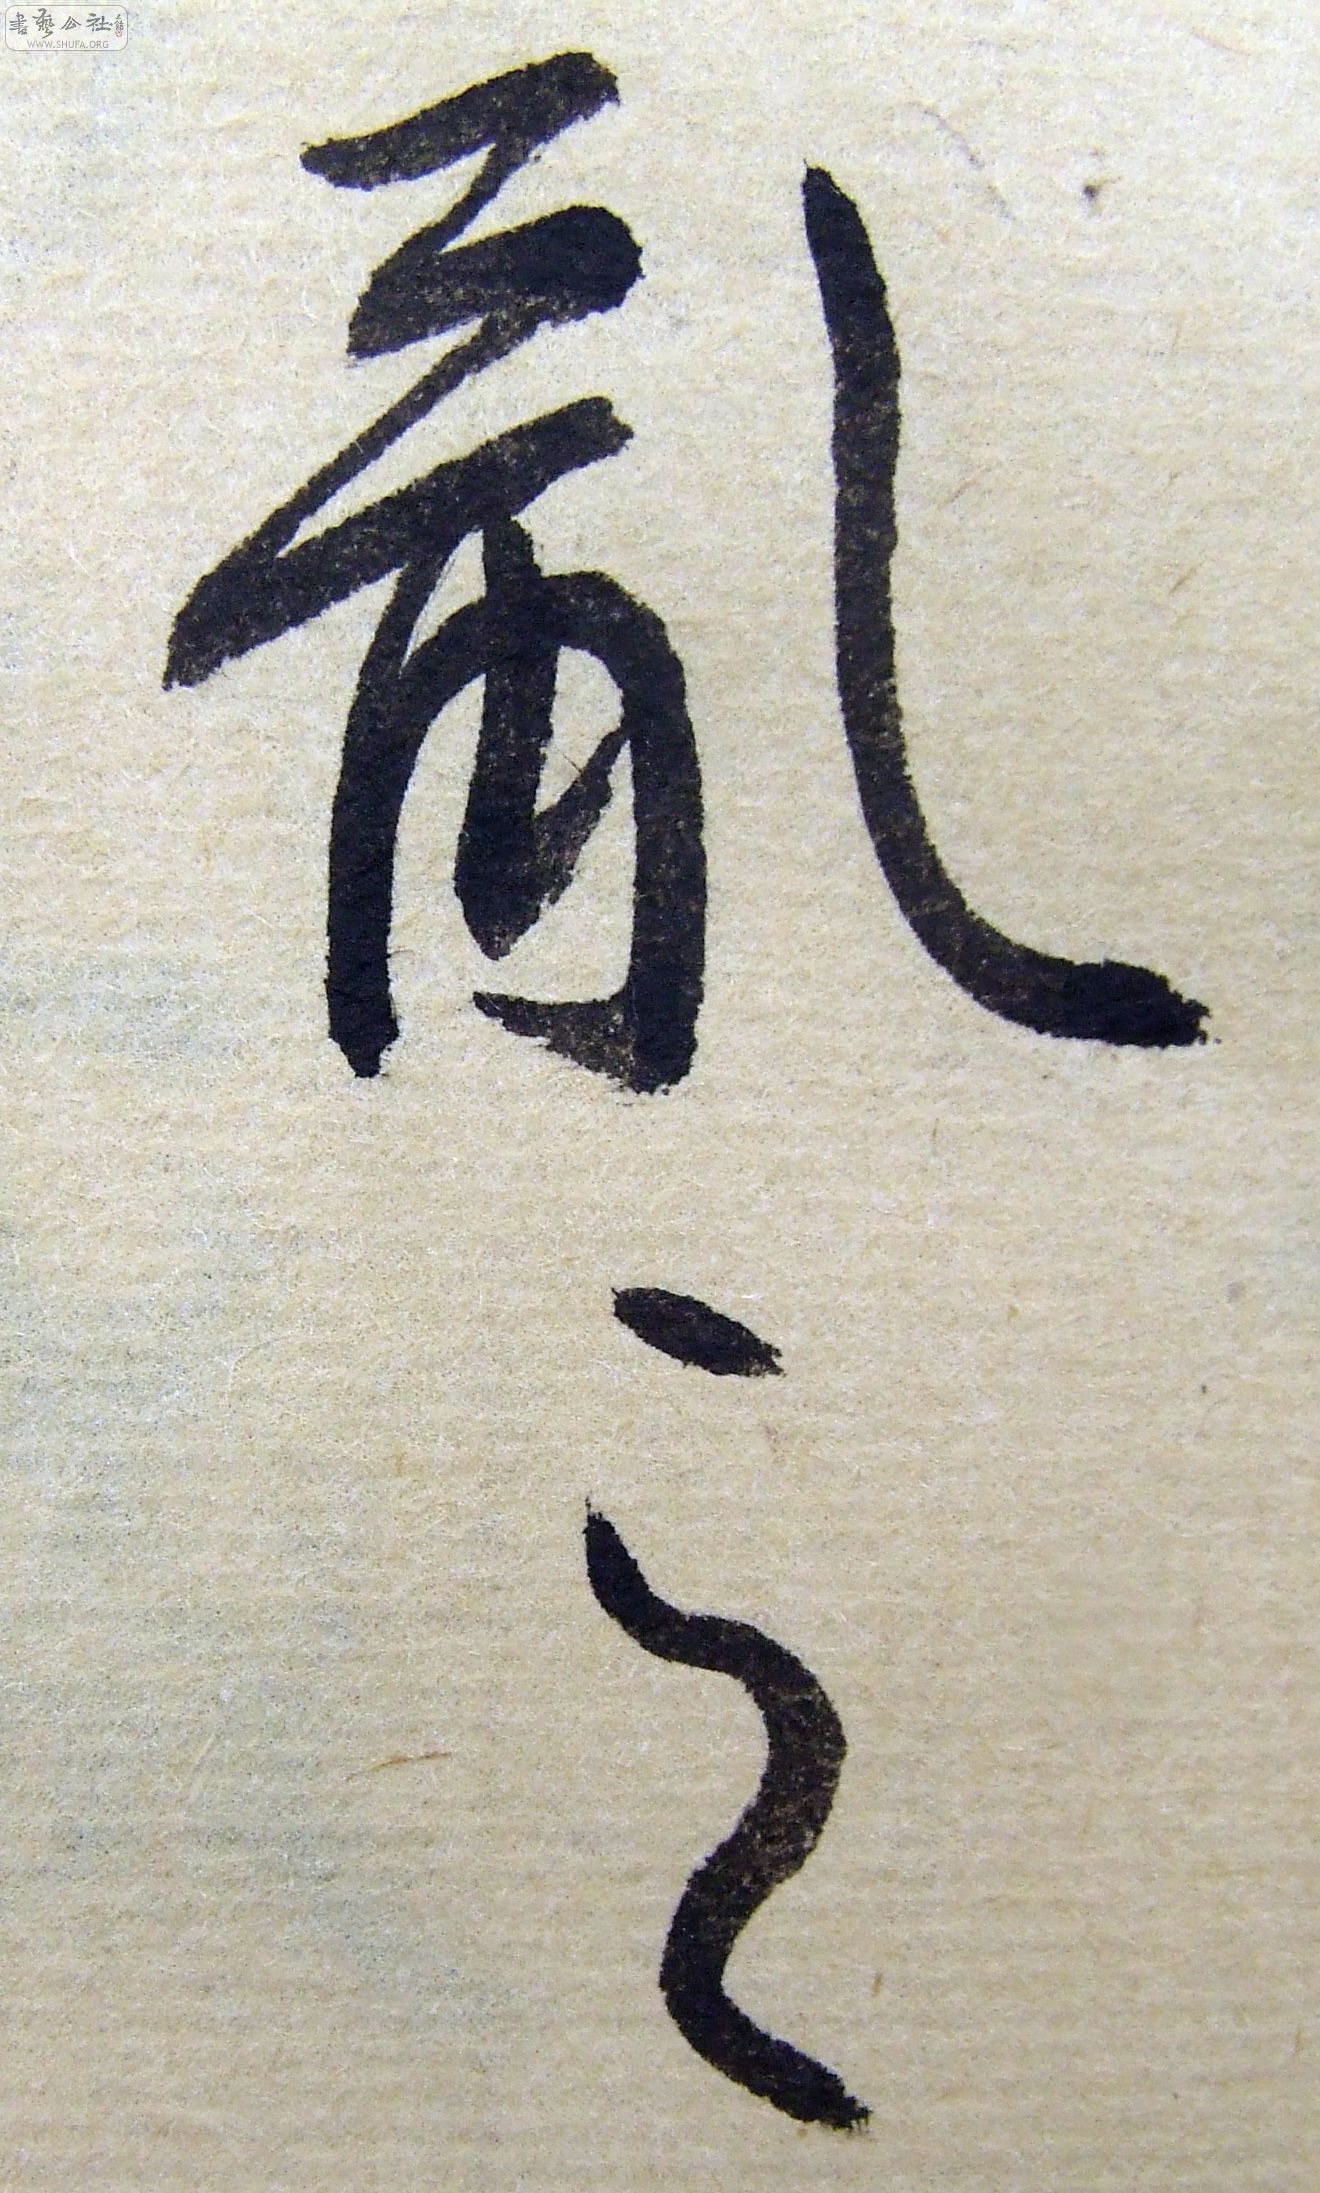 書藝公社
WWW.SHUFA.ORG
亂之